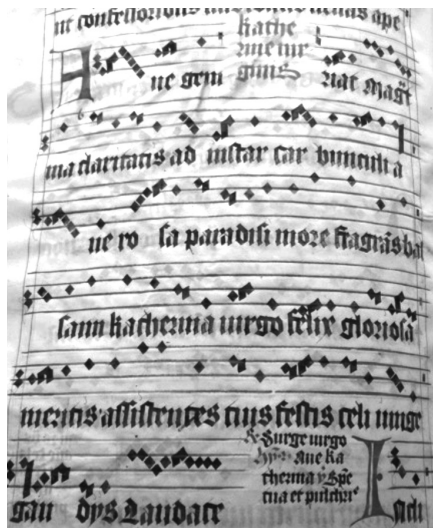 kathe
rine vir
ginis
A ve gem nar Mag
ma claritatis ad instar car buncula
ve ro sa paradisi more fragrās bal
sam katherina virgo felix gloriosa
meritis assistentes tuis festis celi iunge
Surge virgo
Aue ka
therina
et pulchre
gau dys Laudate